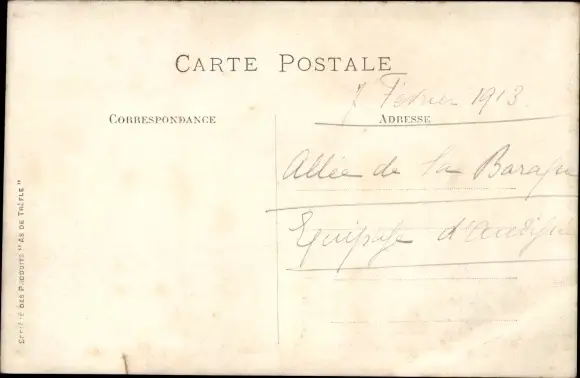 CARTE POSTALE
7 Février 1913
CORRESPONDANCE
ADRESSE
Allée de la
Equipage
SOCIÉTÉ DES PRODUITS "AS DE TRÈFLE"